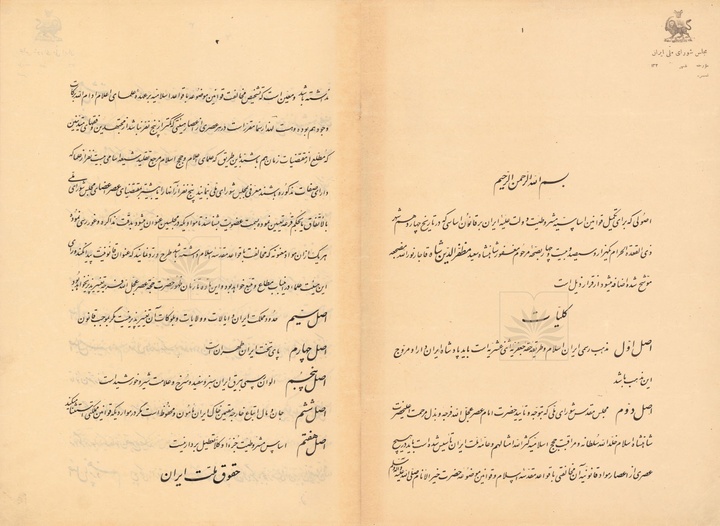 ۱
مجلس شورای ملی ایران
بسم الله الرحمن الرحیم
اصولی که برای تکمیل قوانین اساسیه مشروطیت دولت علیه ایران بر قانون اساسی که در تاریخ چهاردهم شهر
ذی القعدة الحرام یکهزار و سیصد و بیست و چهار بصحه مرحوم مغفور شاهنشاه سعید مظفرالدین شاه قاجار نورالله مضجعه
موشح شده اضافه میشود از قرار ذیل است
کلیات
اصل اول مذهب رسمی ایران اسلام و طریقه حقه جعفریه اثنی عشریه است باید پادشاه ایران دارا و مروج
این مذهب باشد
اصل دوم مجلس مقدس شورای ملی که بتوجه و تأیید حضرت امام عصر عجل الله فرجه و بذل مرحمت اعلیحضرت
شاهنشاه اسلام خلد الله سلطانه و مراقبت حجج اسلامیه کثرالله امثالهم و عامه ملت ایران تأسیس شده است باید در هیچ
عصری از اعصار مواد قانونیه آن مخالفتی با قواعد مقدسه اسلام و قوانین موضوعه حضرت خیرالانام صلی الله علیه و آله و سلم
۲
نداشته باشد و معین است که تشخیص مخالفت قوانین موضوعه با قواعد اسلامیه بر عهده علمای اعلام ادام الله برکات
وجودهم بوده و هست لهذا رسما مقرر است در هر عصری از اعصار هیئتی که کمتر از پنج نفر نباشد از مجتهدین و فقهای متدینین
که مطلع از مقتضیات زمان هم باشند باین طریق که علمای اعلام و حجج اسلام مرجع تقلید شیعه اسامی بیست نفر از علما که
دارای صفات مذکوره باشند معرفی بمجلس شورای ملی بنمایند پنج نفر از آنها را یا بیشتر بمقتضای عصر اعضای مجلس شورای ملی
بالاتفاق یا بحکم قرعه تعیین نموده بسمت عضویت بشناسند تا موادیکه در مجلس عنوان میشود بدقت مذاکره و غوررسی نموده
هریک از آن مواد معنونه که مخالفت با قواعد مقدسه اسلام داشته باشد طرح و رد نمایند که عنوان قانونیت پیدا نکند و رأی
این هیئت علما در این باب مطاع و متبع خواهد بود و این ماده تا زمان ظهور حضرت حجة عصر عجل الله فرجه تغییر پذیر نخواهد بود
اصل سیم حدود مملکت ایران و ایالات و ولایات و بلوکات آن تغییر پذیر نیست مگر بموجب قانون
اصل چهارم پای تخت ایران طهران است
اصل پنجم الوان رسمی بیرق ایران سبز و سفید و سرخ و علامت شیر و خورشید است
اصل ششم جان و مال اتباع خارجه مقیمین خاک ایران مأمون و محفوظ است مگر در مواردیکه قوانین مملکتی استثنا میکند
اصل هفتم اساس مشروطیت جزءا و کلا تعطیل بردار نیست
حقوق ملت ایران